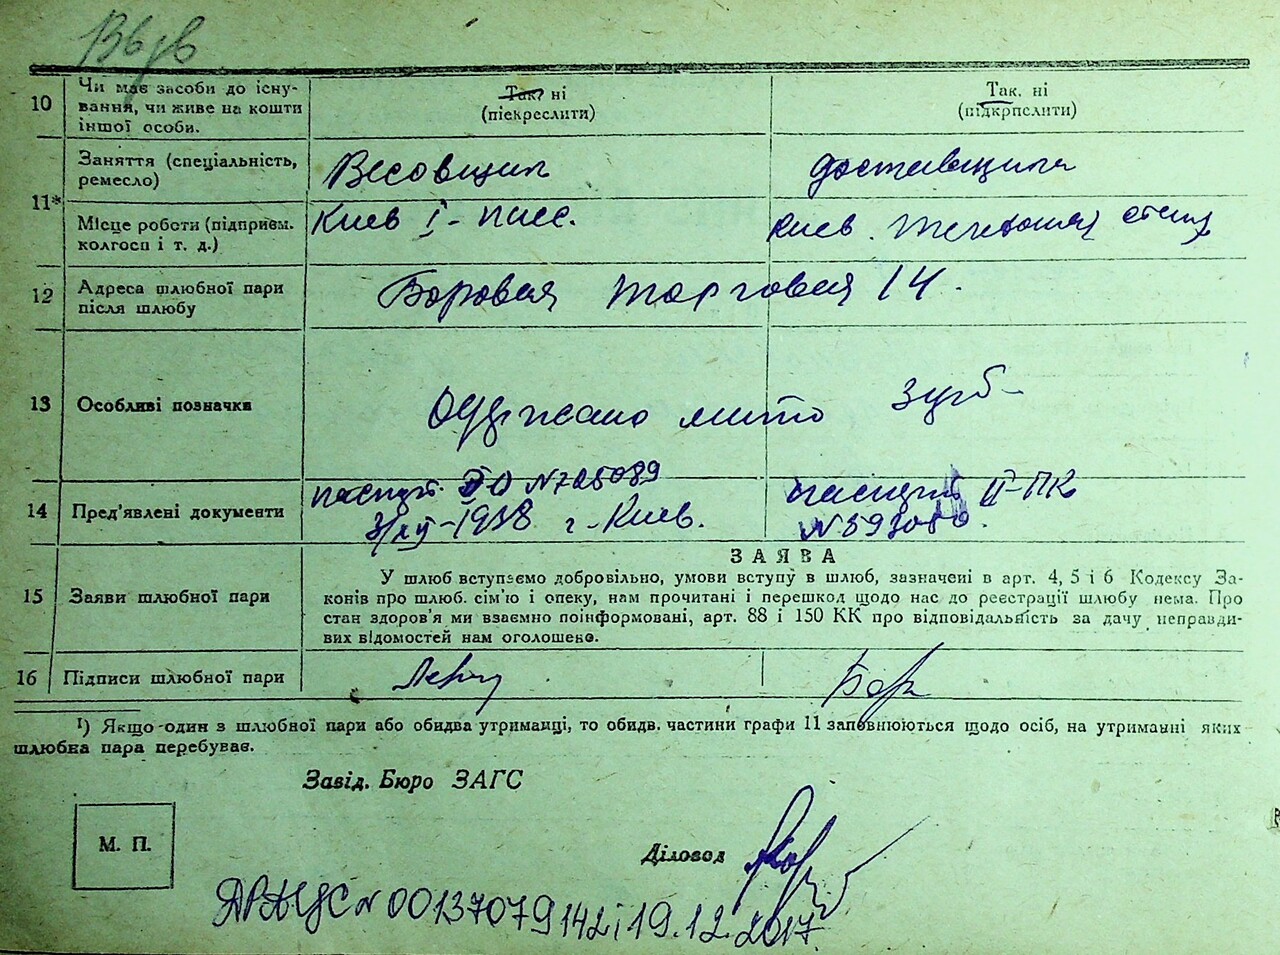 10 Чи має засоби до існу-
вання, чи живе на кошти
іншої особи.
Так? ні
(піекреслити)
Так. ні
(підкрпслити)
11* Заняття (спеціальність,
ремесло)
Весовщик
доставщица
Місце роботи (підприєм.
колгосп і т. д.)
Киев I - пасс.
Киев.
12 Адреса шлюбної пари
після шлюбу
Боровая Торговая 14.
13 Особливі позначка
Одержано мито 3 урб-
14 Пред'явлені документи
паспорт. N 725089
3/XII-1938 г. Киев.
паспорт II-ПК
N 593080.
ЗАЯВА
15 Заяви шлюбної пари
У шлюб вступаємо добровільно, умови вступу в шлюб, зазначені в арт. 4, 5 і 6 Кодексу За-
конів про шлюб. сім'ю і опеку, нам прочитані і перешкод щодо нас до реєстрації шлюбу нема. Про
стан здоров'я ми взаємно поінформовані, арт. 88 і 150 КК про відповідальність за дачу неправди-
вих відомостей нам оголошено.
16 Підписи шлюбної пари
¹) Якщо один з шлюбної пари або обидва утриманці, то обидв. частини графи 11 заповнюються щодо осіб, на утриманні яких
шлюбна пара перебуває.
Завід. Бюро ЗАГС
М. П.
Діловод
ДРАЦС N 00137079142 і 19.12.2017.